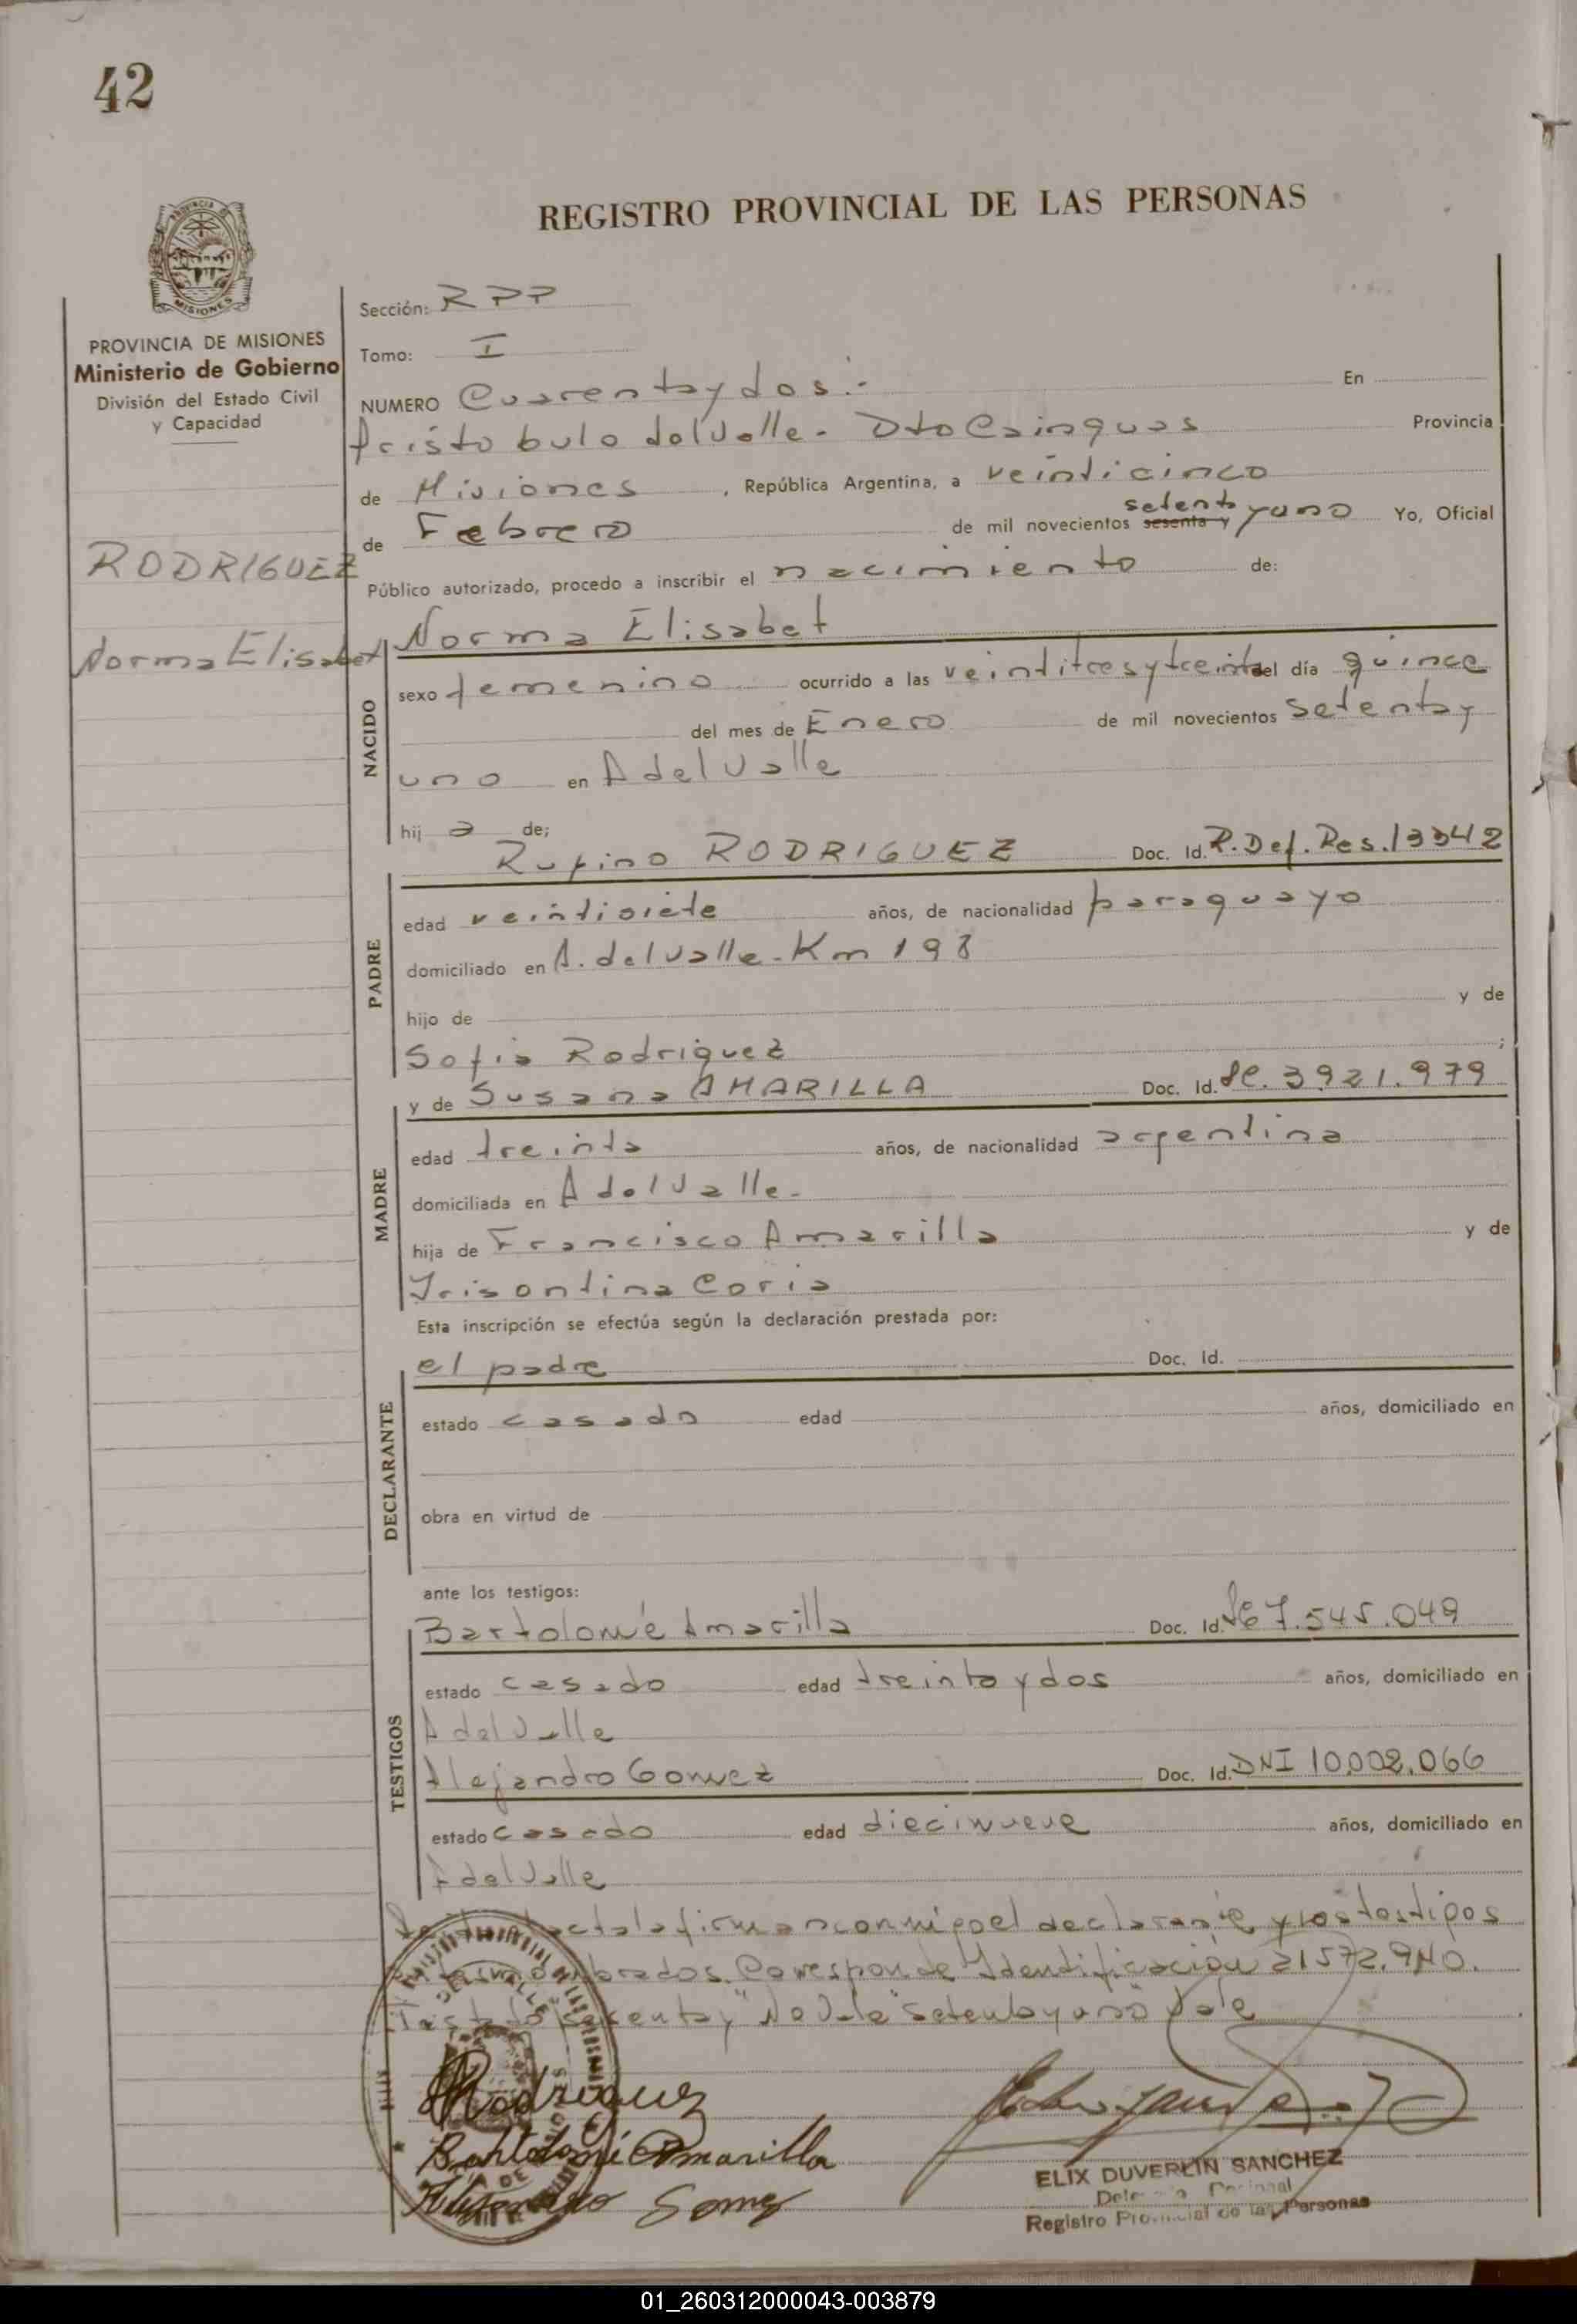 42
REGISTRO PROVINCIAL DE LAS PERSONAS
PROVINCIA
MISIONES
PROVINCIA DE MISIONES
Ministerio de Gobierno
División del Estado Civil
y Capacidad
RODRIGUEZ
Norma Elisabet
Sección: RPP
Tomo: I
NUMERO Cuarenta y dos.- En
Aristobulo del Valle - Dto Cainguas Provincia
de Misiones, República Argentina, a veinticinco
de Febrero de mil novecientos sesenta y setenta y uno Yo, Oficial
Público autorizado, procedo a inscribir el nacimiento de:
Norma Elisabet
NACIDO
sexo femenino ocurrido a las veintitres y treinta del día quince
del mes de Enero de mil novecientos setenta y
uno en A del Valle
hij a de;
Rufino RODRIGUEZ Doc. Id. R. Def. Res. 13342
PADRE
edad veintisiete años, de nacionalidad paraguayo
domiciliado en A. del Valle - Km 198
hijo de y de
Sofia Rodriguez ;
y de Susana AMARILLA Doc. Id. 3.921.979
MADRE
edad treinta años, de nacionalidad argentina
domiciliada en A del Valle -
hija de Francisco Amarilla y de
Coria
Esta inscripción se efectúa según la declaración prestada por:
el padre Doc. Id.
DECLARANTE
estado casado edad años, domiciliado en
obra en virtud de
ante los testigos:
Bartolomé Amarilla Doc. Id. 7.545.049
TESTIGOS
estado casado edad treinta y dos años, domiciliado en
A del Valle
Alejandro Gomez Doc. Id. DNI 10.002.066
estado casado edad diecinueve años, domiciliado en
A del Valle
acta la firman conmigo el declarante y los testigos
nombrados. Corresponde Identificación 21572.940.
Testado "sesenta y" No Vale "setenta y uno" Vale
Rodriguez
Bartolomé Amarilla
Alejandro Gomez
ELIX DUVERLIN SANCHEZ
Registro Provincial de las Personas
01_260312000043-003879